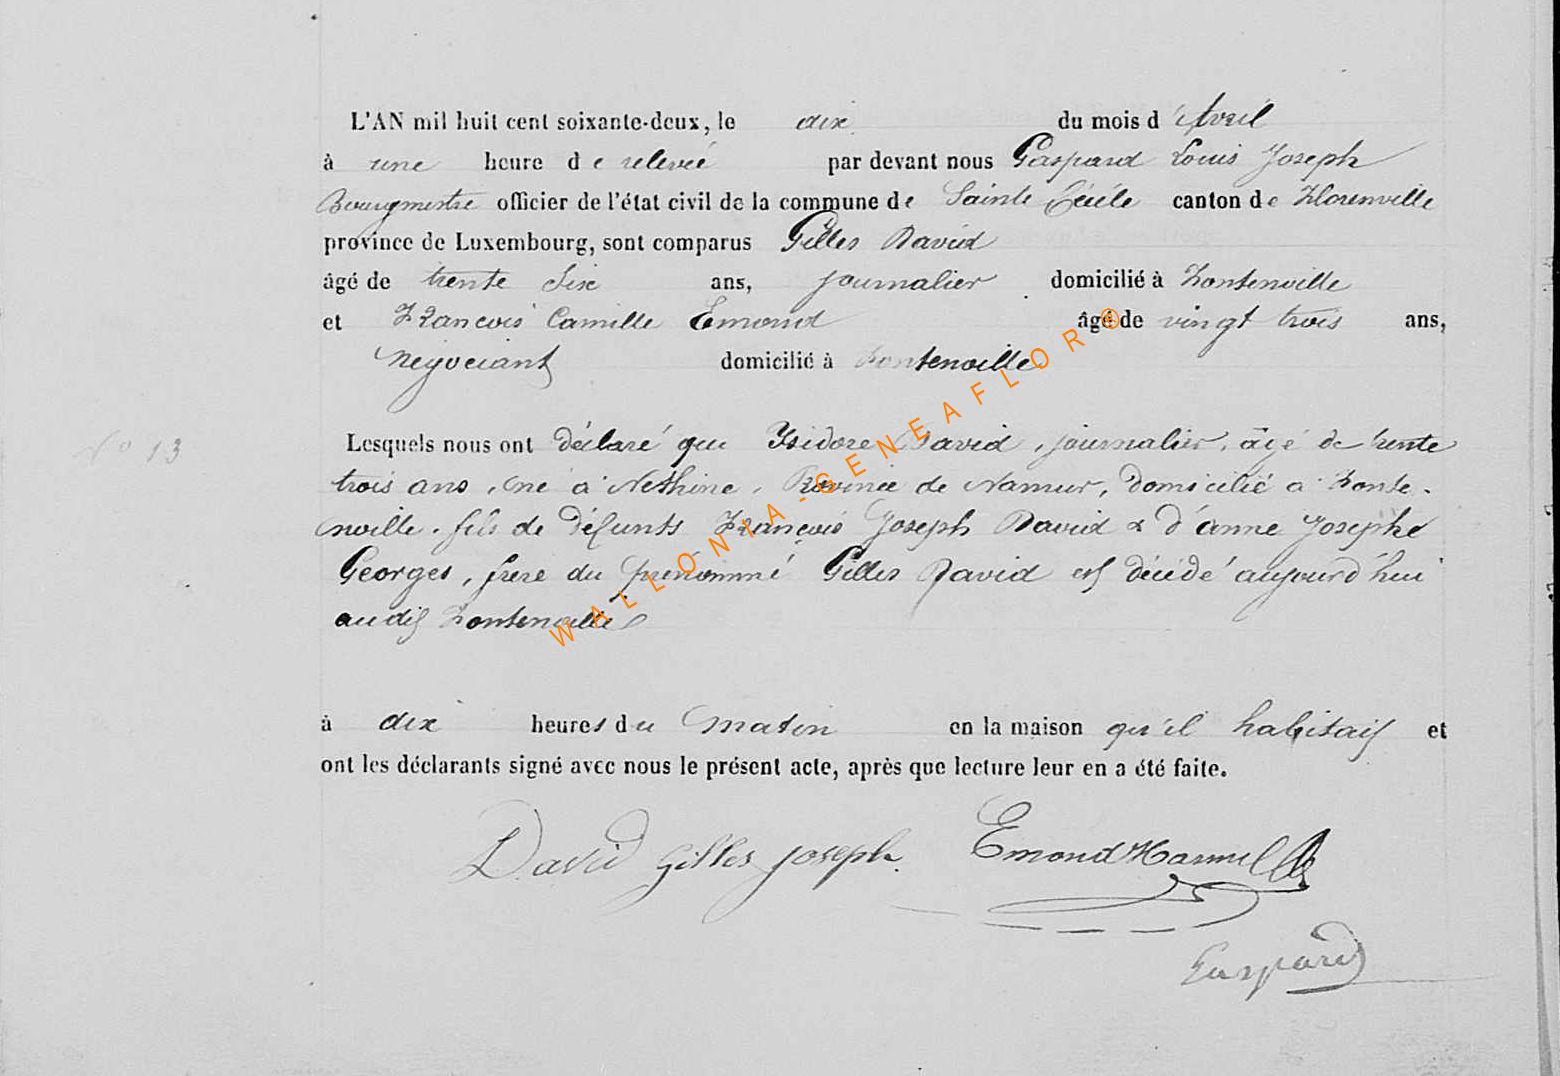 L'AN mil huit cent soixante-deux, le dix du mois d'Avril
à une heure de relevée par devant nous Gaspard Louis Joseph
Bourgmestre officier de l'état civil de la commune de Sainte Cécile canton de Florenville
province de Luxembourg, sont comparus Gilles David
âgé de trente six ans, journalier domicilié à Fontenoille
et François Camille Emond âgé de vingt trois ans,
négociant domicilié à Fontenoille
N° 13
Lesquels nous ont déclaré que Isidore David, journalier, âgé de trente
trois ans, né à Nethine, Province de Namur, domicilié à Fonte-
noille, fils de défunts François Joseph David & d'anne Josephe
Georges, frère du prénommé Gilles David est décédé aujourd'hui
audit Fontenoille
à dix heures du matin en la maison qu'il habitait et
ont les déclarants signé avec nous le présent acte, après que lecture leur en a été faite.
David Gilles Joseph. Emond
Gaspard
WALLONIA-GENEAFLOR®